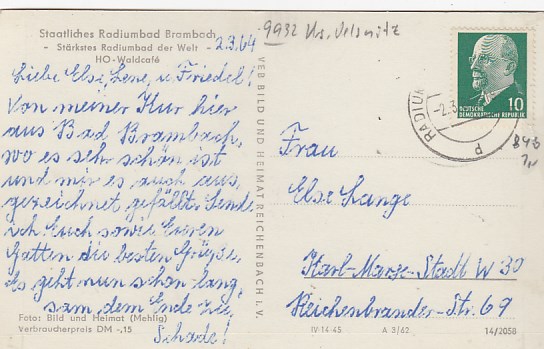 Staatliches Radiumbad Brambach
- Stärkstes Radiumbad der Welt -
HO-Waldcafé
2.3.64
Liebe Else, Lene, u. Friedel!
Von meiner Kur hier
aus Bad Brambach,
wo es sehr schön ist
und mir es auch aus,
gezeichnet gefällt, sende
ich Euch sowie Euren
Gatten die besten Grüße,
es geht nun schon lang,
sam, dem Ende zu,
Schade!
Foto: Bild und Heimat (Mehlig)
Verbraucherpreis DM -,15
VEB BILD UND HEIMAT REICHENBACH I. V.
9932 Krs. Oelsnitz
10
DEUTSCHE
DEMOKRATISCHE REPUBLIK
RADIUM
-2.3.
d
Frau
Else Lange
Karl-Marx-Stadt W 30
Reichenbrander-Str. 69
IV-14-45 A 3/62 14/2058